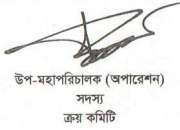 উপ-মহাপরিচালক (অপারেশন)
সদস্য
ক্রয় কমিটি